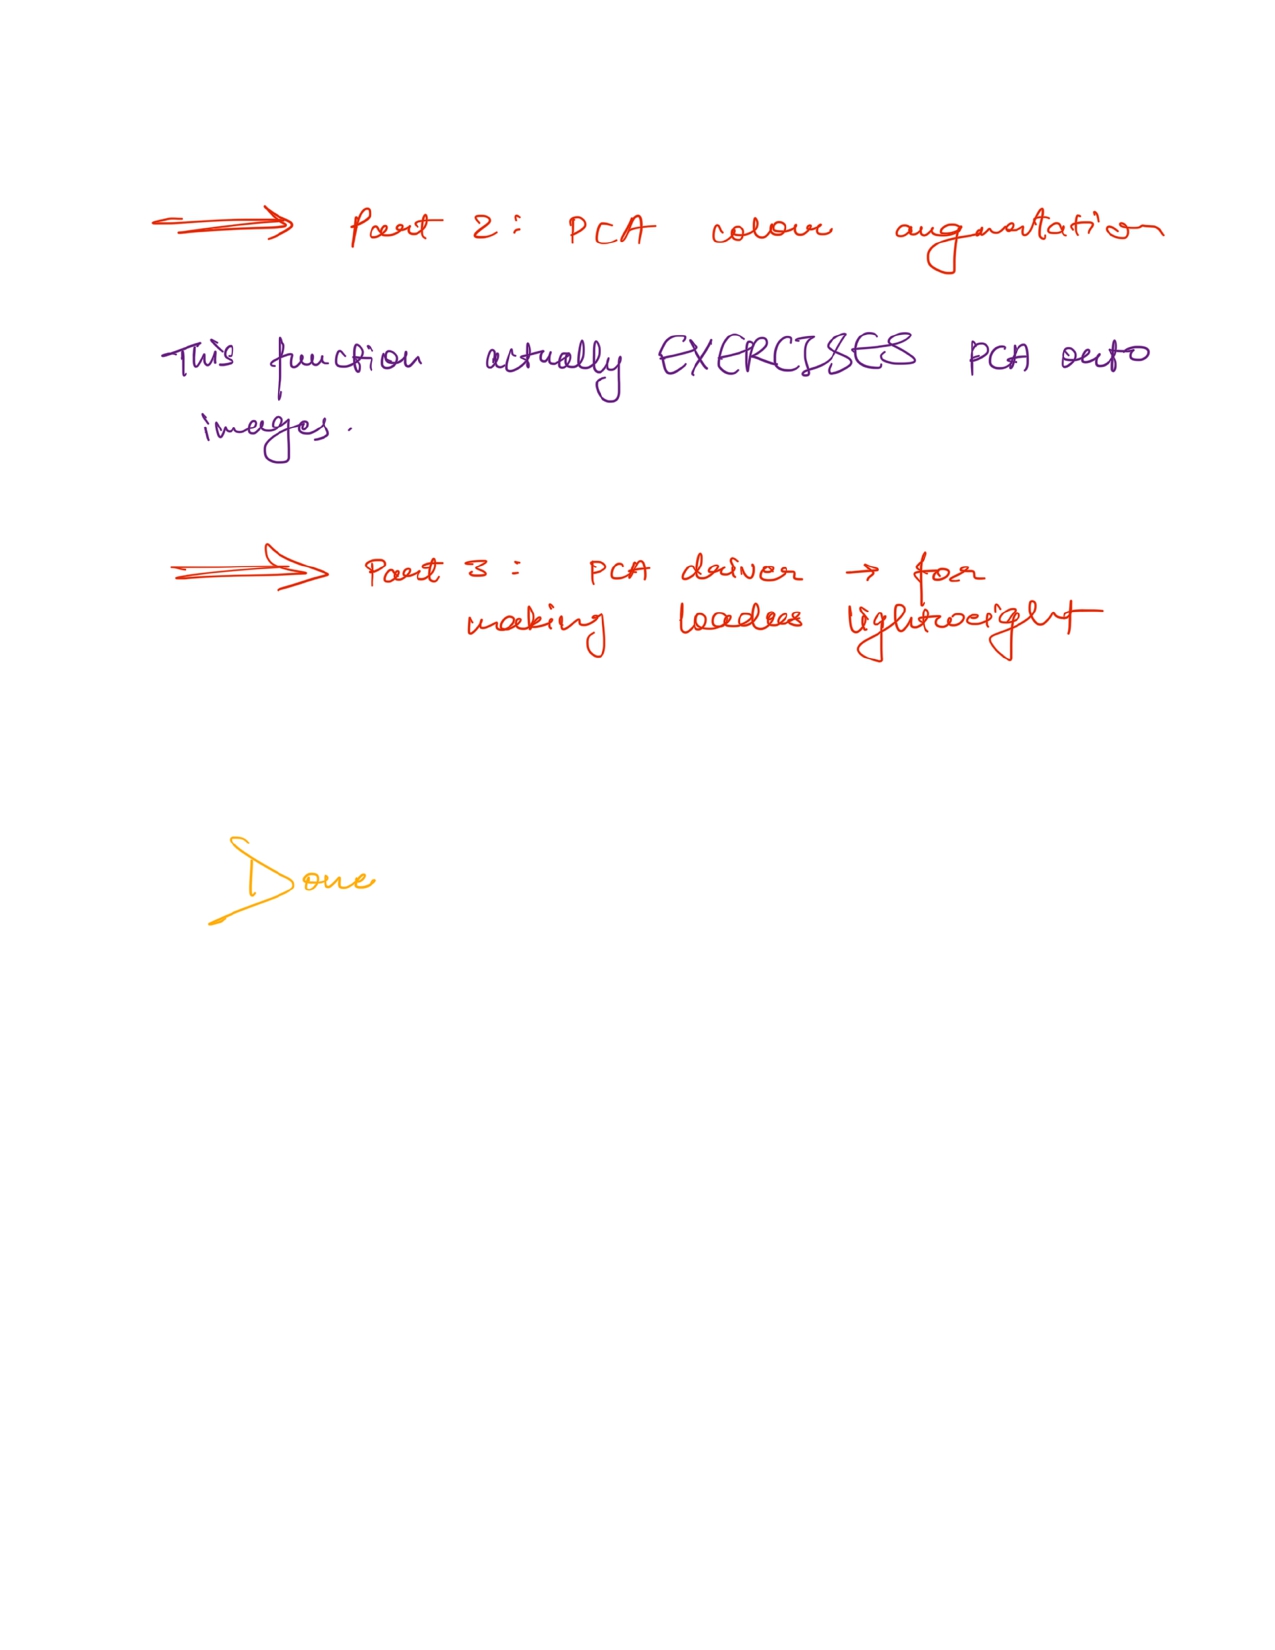 ⟹ Part 2: PCA colour augmentation
This function actually EXERCISES PCA onto
images.
⟹ Part 3: PCA driver → for
making loaders lightweight
Done